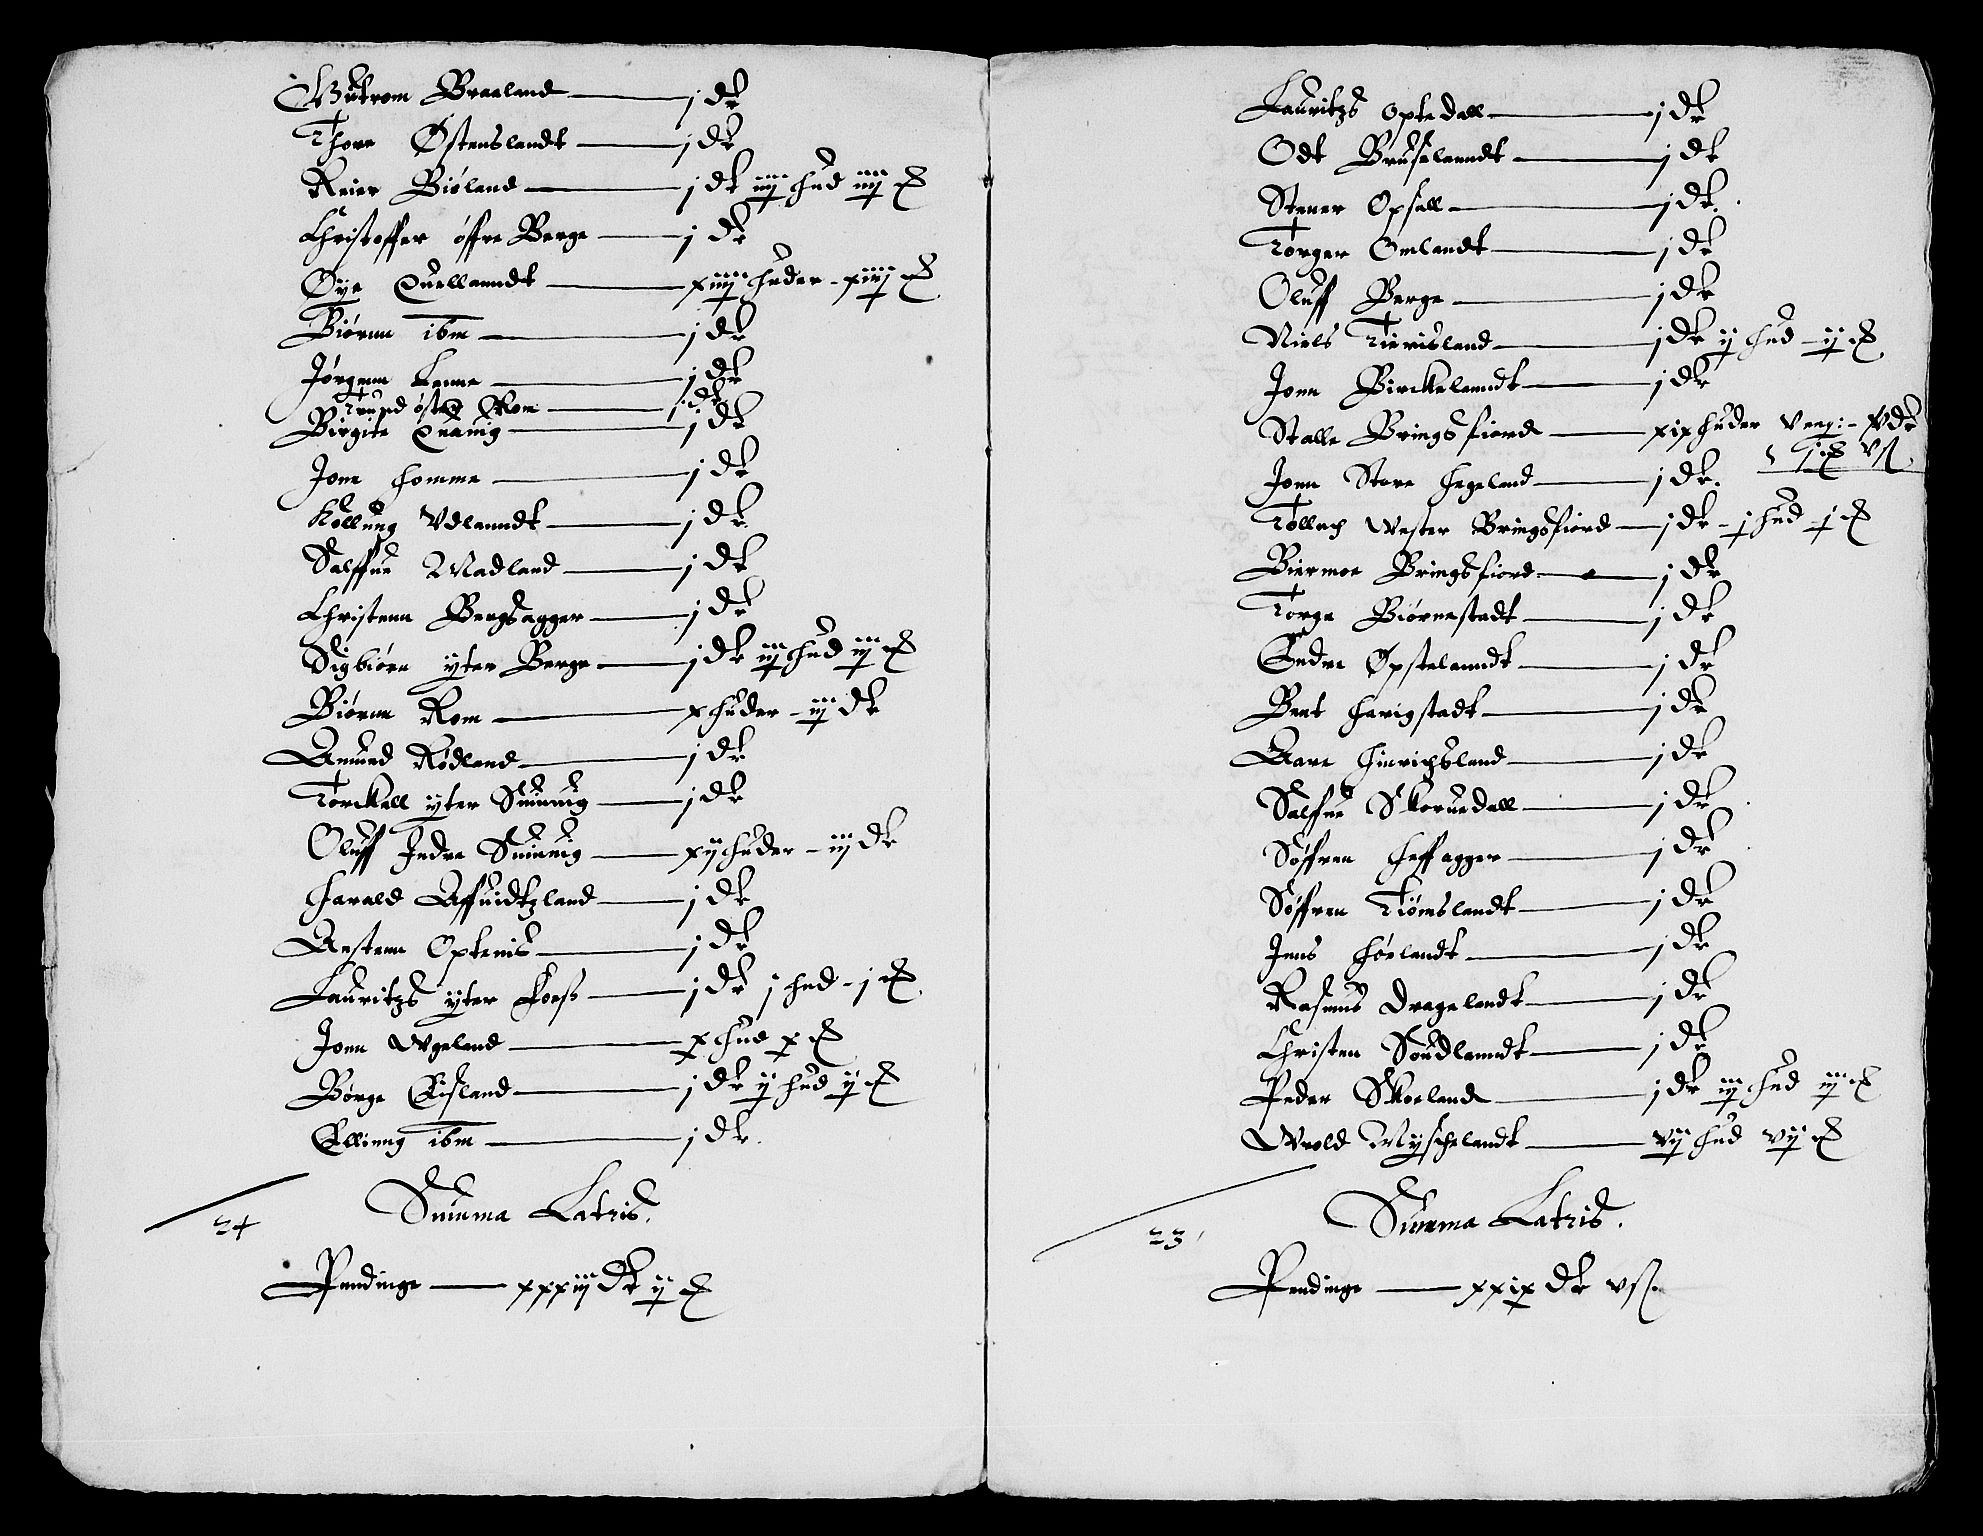 Gutrom Braaland — j dr
Thore Østenslandt — j dr
Reier Biöland — j dr iiij hud iiij
Christoffer øffre Berge — j dr
Øye Quellanndt — xiiij huder - xiiij
Biörnn ibm — j dr
Jörgenn Lenne — j dr
Trund østen Rom — j dr
Birgite Quauig — j dr
Jonn Homme — j dr
Kollung Vdlanndt — j dr
Salffue Madland — j dr
Christenn Bergsagger — j dr
Sigbiörn ytter Berge — j dr iij hud iij
Biörnn Rom — x huder - iij dr
Amund Rödland — j dr
Torckell ytter Snimig — j dr
Oluff Indre Snimig — xij huder - iij dr
Harald Affuidtzland — j dr
Aestenn Optenis — j dr
Lauritzs ytter Foess — j dr j hud - j
Jonn Wgeland — x hud x
Börge Eisland — j dr ij hud ij
Elling ibm — j dr.
Summa Latris.
24
Pendinge — xxxiij dr ij
Lauritzs Optedall — j dr
Odt Bruselanndt — j dr
Stener Opsall — j dr.
Törger Omlandt — j dr
Oluff Berge — j dr
Niels Tierisland — j dr ij hud - ij
Jonn Birckelanndt — j dr
Stalle Bringsfiord — xix huder v eng: - v dr
j v s.
Jonn Store Hegeland — j dr.
Tollach Wester Bringsfiord — j dr - j hud j
Biermoe Bringsfiord — j dr
Törge Biörnestadt — j dr
Endre Øpstelanndt — j dr
Bent Harigstadt — j dr
Aare Hinrichsland — j dr
Salffue Skoruedall — j dr
Söffren Heffagger — j dr
Söffren Tiömslandt — j dr
Jens Höelandt — j dr
Rasmus Dragelandt — j dr
Christen Soudlanndt — j dr
Peder Skoeland — j dr iij hud iij
Wrold Myschelandt — vij hud vij
Summa Latris.
23
Pendinge — xxix dr v s.